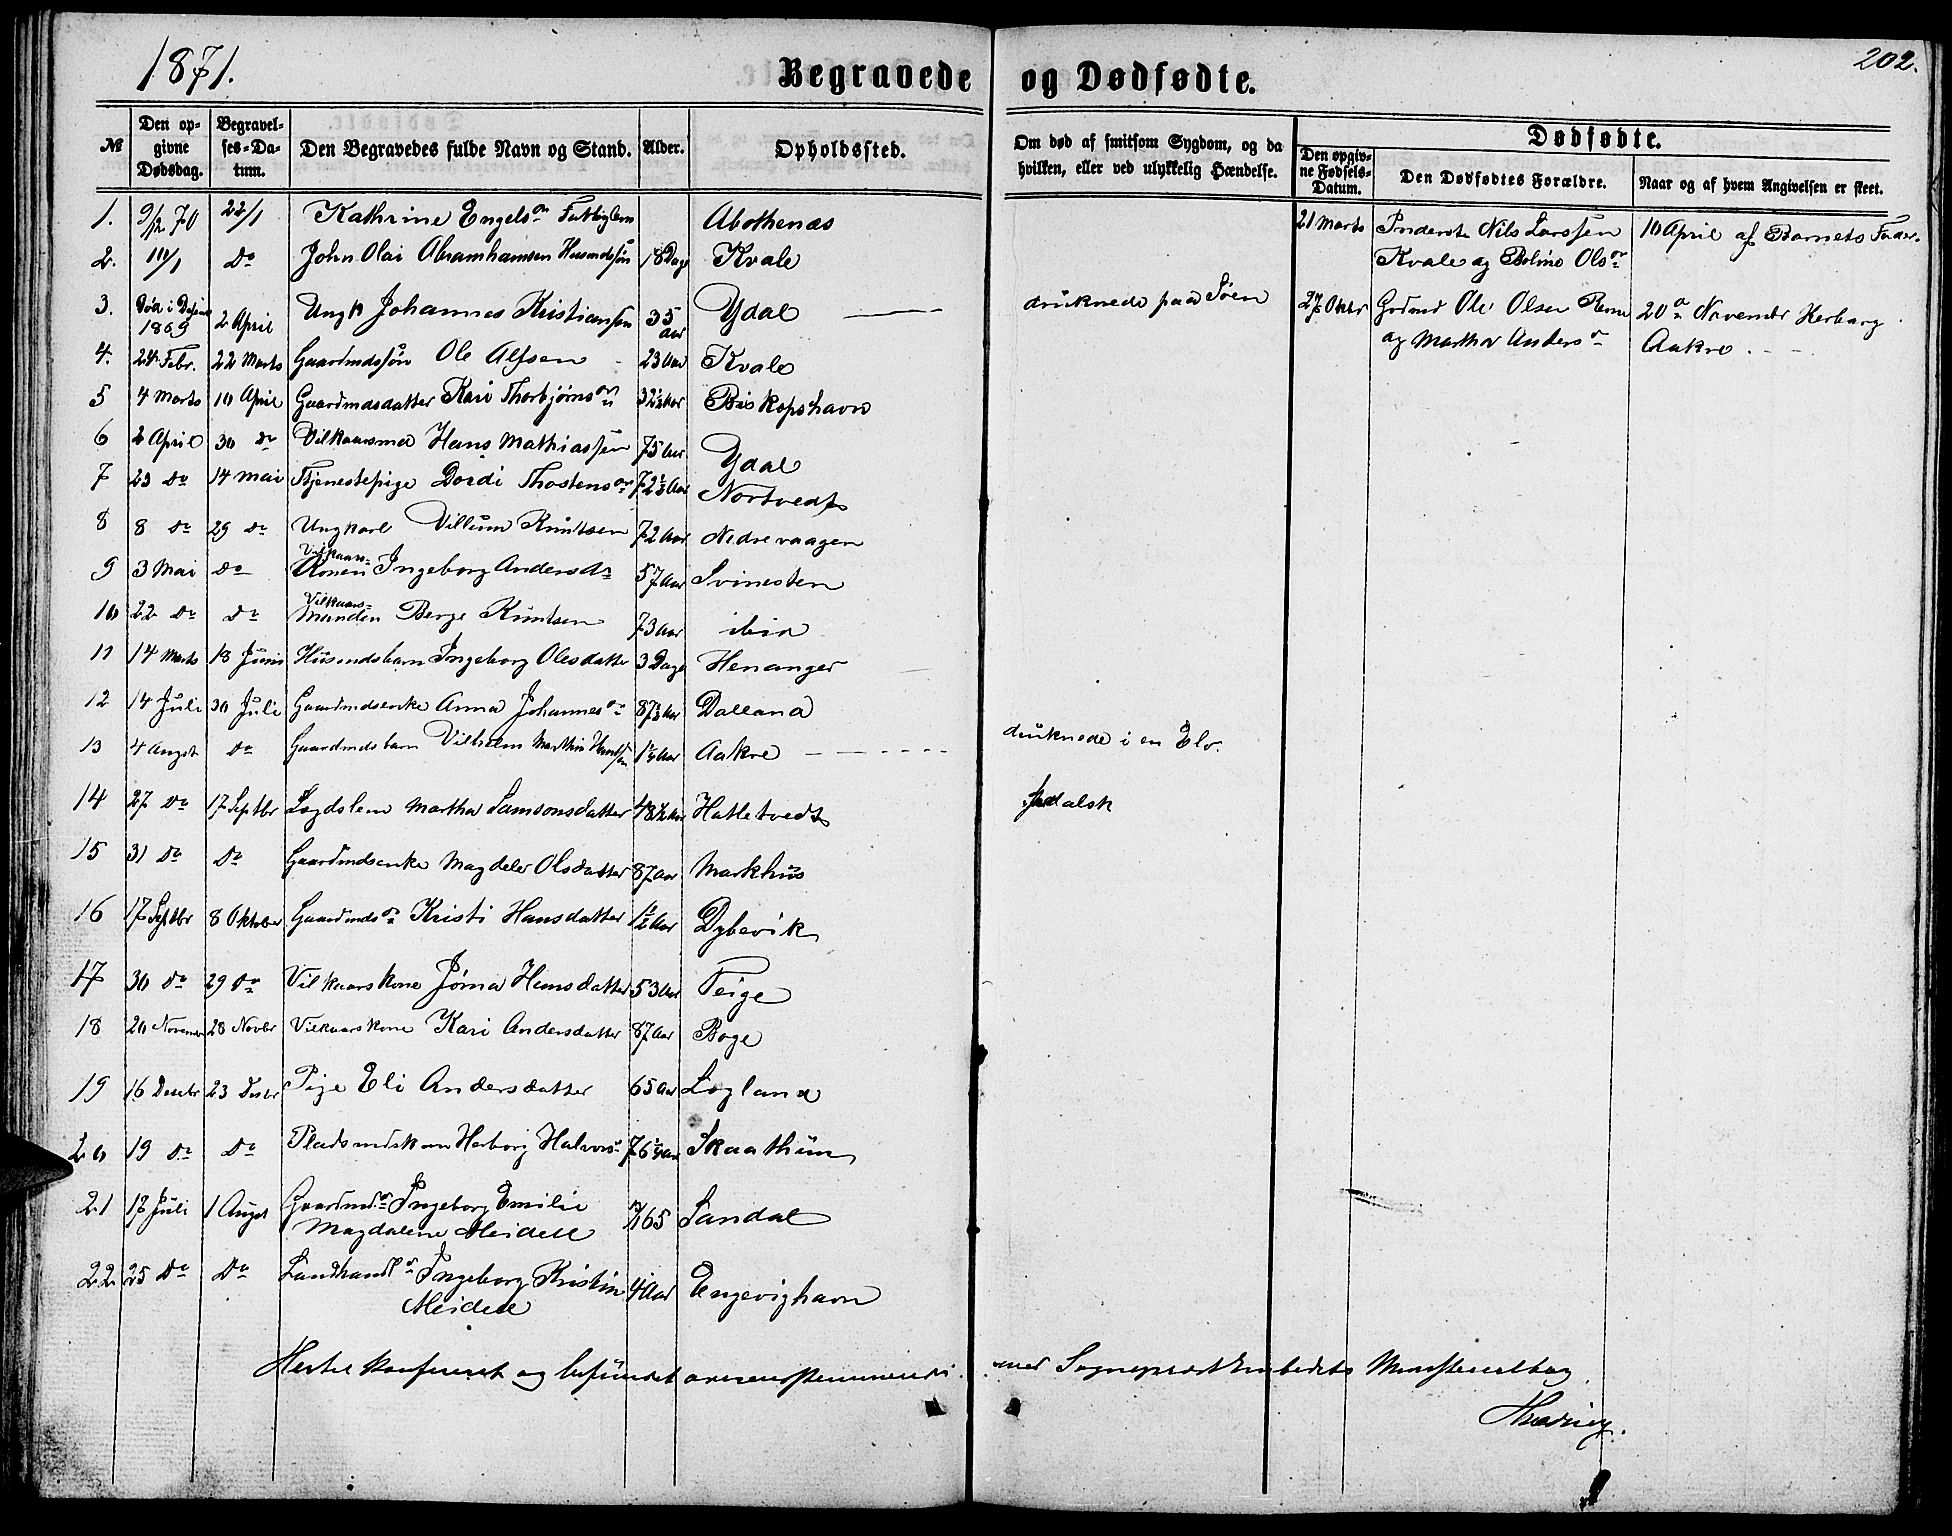 1871.
Begravede og Dødfødte.
202.
№
Den opgivne Dødsdag.
Begravelses-Datum.
Den Begravedes fulde Navn og Stand.
Alder.
Opholdssted.
Om død af smitsom Sygdom, og da hvilken, eller ved ulykkelig Hændelse.
Dødfødte.
Den opgivne Fødsels-Datum.
Den Dødfødtes Forældre.
Naar og af hvem Angivelsen er skeet.
1. 9/12 70 22/1 Kathrine Engels Abothenæs
2. 10/1 Do John Olai 18 Dage Kvale
3. Død i 1869 2 April Ungk Johannes Kristiansen 35 Aar Ydal druknede paa Søen
4. 24 Febr. 22 Marts Gaardmdssøn Ole Alfsen 23 Aar Kvale
5 4 Marts 10 April Gaardmdsdatter Kari Thorbjørns 32½ Aar Biskopshavn
6 2 April 30 do Vilkaarsmd Hans Mathiassen 75 Aar Ydal
7 23 do 14 Mai Tjenestepige Dordi Thostens 72½ Aar Nortvedt
8 8 do 29 do Ungkarl Villum Knutsen 72 Aar Nedrevaagen
9 3 Mai do Vilkaars-Konen Ingeborg Andersdr 57 Aar Svinesten
10 22 do do Vilkaars-Manden Berge Knutsen 73 Aar ibid
11 14 Marts 18 Juni Husmdsbarn Ingeborg Olesdatter 3 Dage Henanger
12 14 Juli 30 Juli Gaardmdsenke Anna Johannes Dalland
13 4 Augst do Gaardmdsbarn Vilhelm Marthin 1¼ Aar Aakre druknede i en Elv.
14 27 do 17 Septbr Lægdslem Martha Samsonsdatter 48½ Aar Hatletvedt spedalsk
15 31 do do Gaardmdsenke Magdele Olsdatter 87 Aar Markhus
16 17 Septbr 8 Oktober Gaardmds Kristi Hansdatter 1½ Aar Dybevik
17 30 do 29 do Vilkaarskone Jørna Hansdatter 53 Aar Teige
18 20 November 28 Novbr Vilkaarskone Kari Andersdatter 87 Aar Boge
19 16 Decbr 23 Decbr Pige Eli Andersdatter 65 Aar Løgland
20 19 do do Herborg Halvors 76¼ Aar Skaathun
21 17 Juli 1 Augst Gaardmd Ingeborg Emilie
Magdalene Meidell Sandal
22 25 do do Landhandl Ingeborg Kristin
Meidell 4 Aar Engevighavn
21 Marts Inderst Nils Larssen 10 April af Barnets Fader.
Kvale og Ols
27 Oktbr Grdmd Ole Olsen 20 November Herborg
og Martha Anders Aakre.
Hertil konfereret og befundet overensstemmende med Sognepræstembedets Ministerialbog.